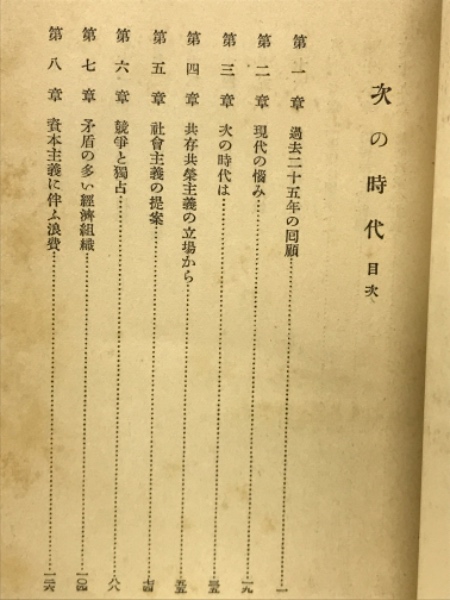 次の時代 目次
第一章 過去二十五年の囘顧……一
第二章 現代の惱み……一九
第三章 次の時代は……三五
第四章 共存共榮主義の立場から……五五
第五章 社會主義の提案……七四
第六章 競爭と獨占……八八
第七章 矛盾の多い經濟組織……一〇四
第八章 資本主義に伴ふ浪費……一二六